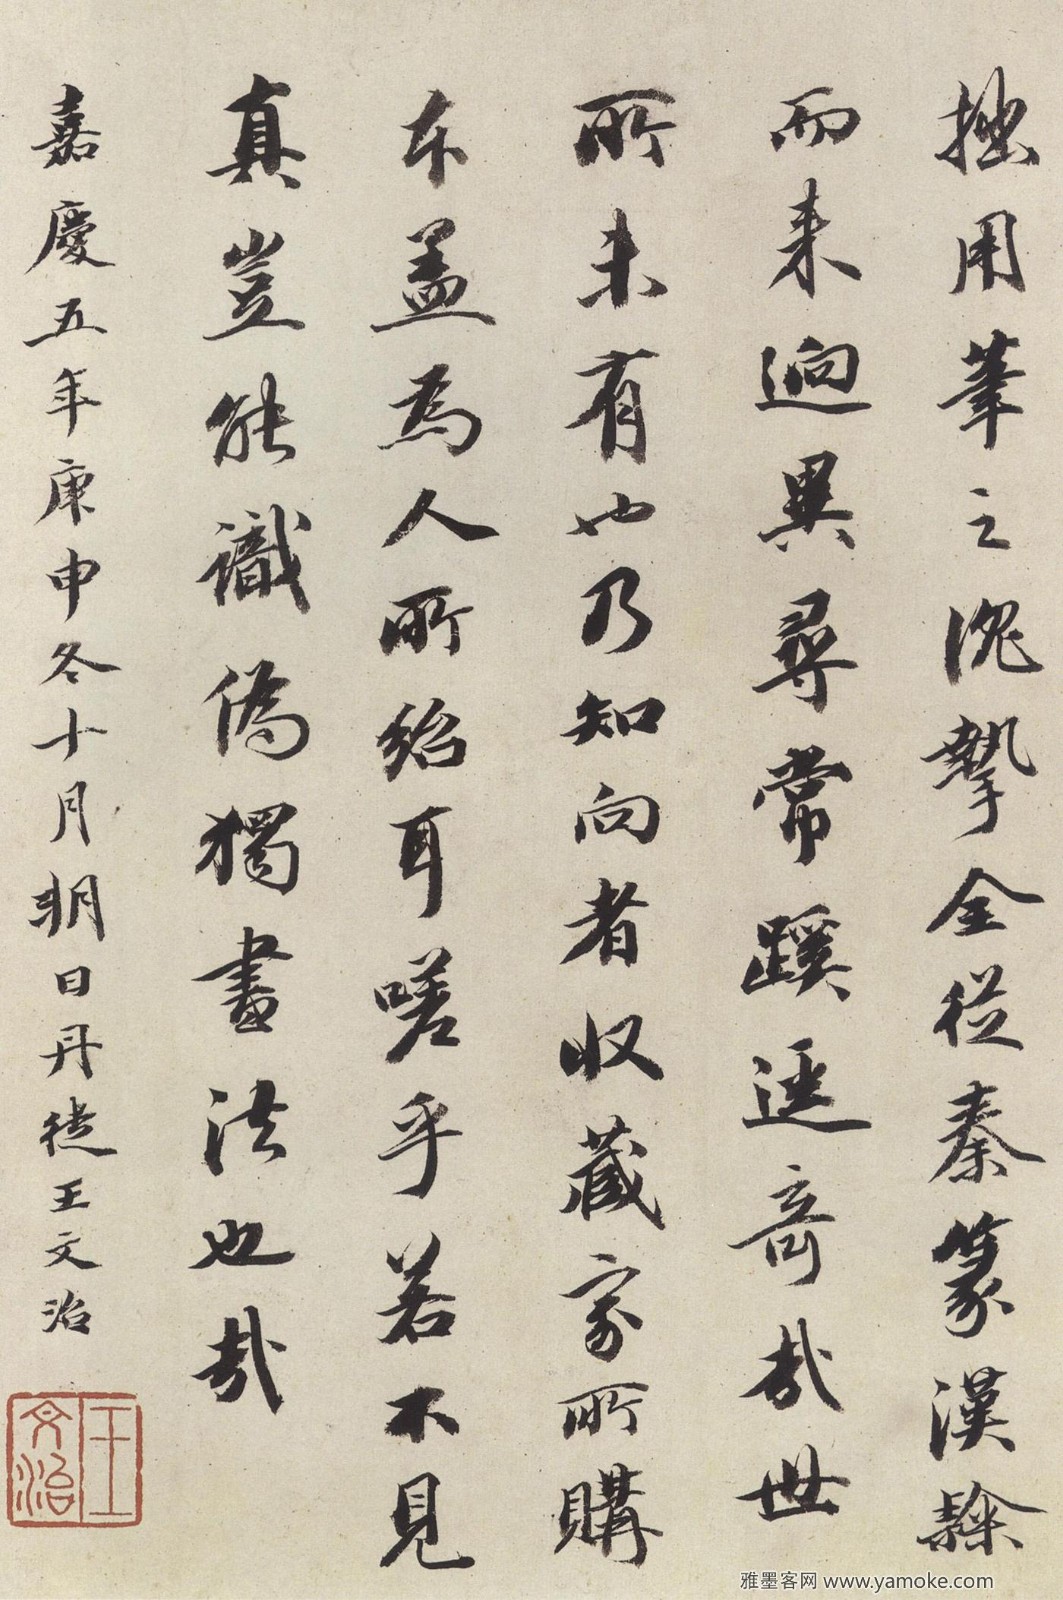 拙用筆之沈摯全從秦篆漢隸
而来迥異尋常蹊逕奇哉世
所未有也乃知向者收藏家所購
本盖為人所紿耳嗟乎若不見
真豈能識偽獨書法也哉
嘉慶五年庚申冬十月朔日丹徒王文治
王文治
雅墨客网 www.yamoke.com